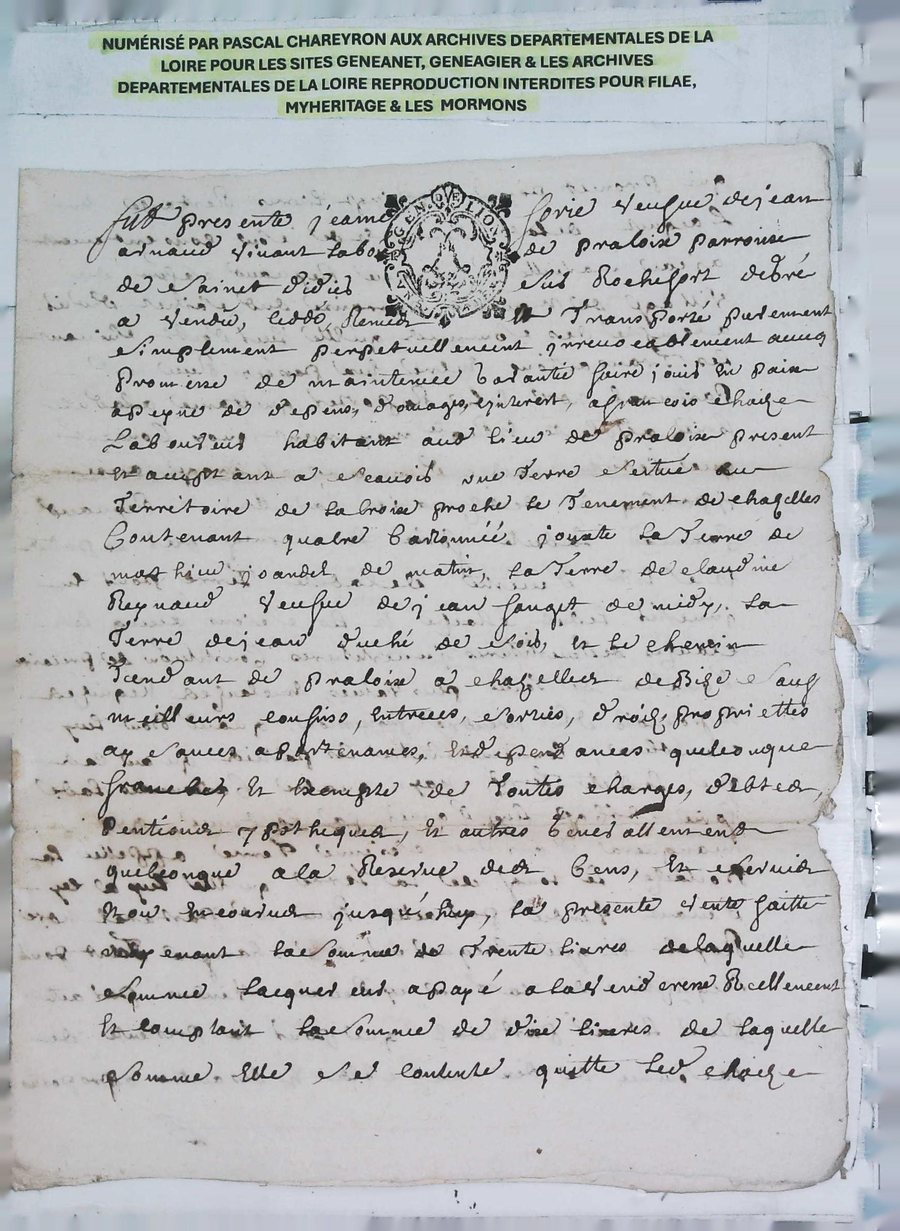 NUMÉRISÉ PAR PASCAL CHAREYRON AUX ARCHIVES DEPARTEMENTALES DE LA
LOIRE POUR LES SITES GENEANET, GENEAGIER & LES ARCHIVES
DEPARTEMENTALES DE LA LOIRE REPRODUCTION INTERDITES POUR FILAE,
MYHERITAGE & LES MORMONS
GEN. D. LION
fut presente jeanne forie veufue de jean
arnaud vivant labo de praloix parroisse
de sainct didié sus Rochefort de gré
a vendu, ceddé, Remis et Transporté purement
simplement perpetuellement jrrevocablement avecq
promesse de maintenue garantie faire jouir en paix
a peyne de depens, domages, ejnterest, a francois chaize
Laboureur habitant aud lieu de praloix present
Et acceptant a scavoir une Terre scitué au
Territoire de la croix proche le Tenement de chazelles
Contenant quatre cartonnéé jouxte la Terre de
mathieu joandel de matin, la Terre de claudine
Reynaud veufue de jean de midy, la
Terre de jean duché de soir, et le chemin
Tendant de praloix a chazelles de Bize sauf
meilleurs confins, entrees, sorties, droicz, proprietes
aysances apartenances, Et dependances quelconque
franche, Et exempte de Toutes charges, debtes,
Pentions ypotheques, et autres generallement
quelconque a la Reserve des cens, et servis
non encourus jusqu'a huy, la presente vente faitte
moyenant la somme de Trente livres de laquelle
somme lacquereur a payé a la venderesse Reellement
Et comptant la somme de dix livres de laquelle
somme Elle se contente quitte led chaize